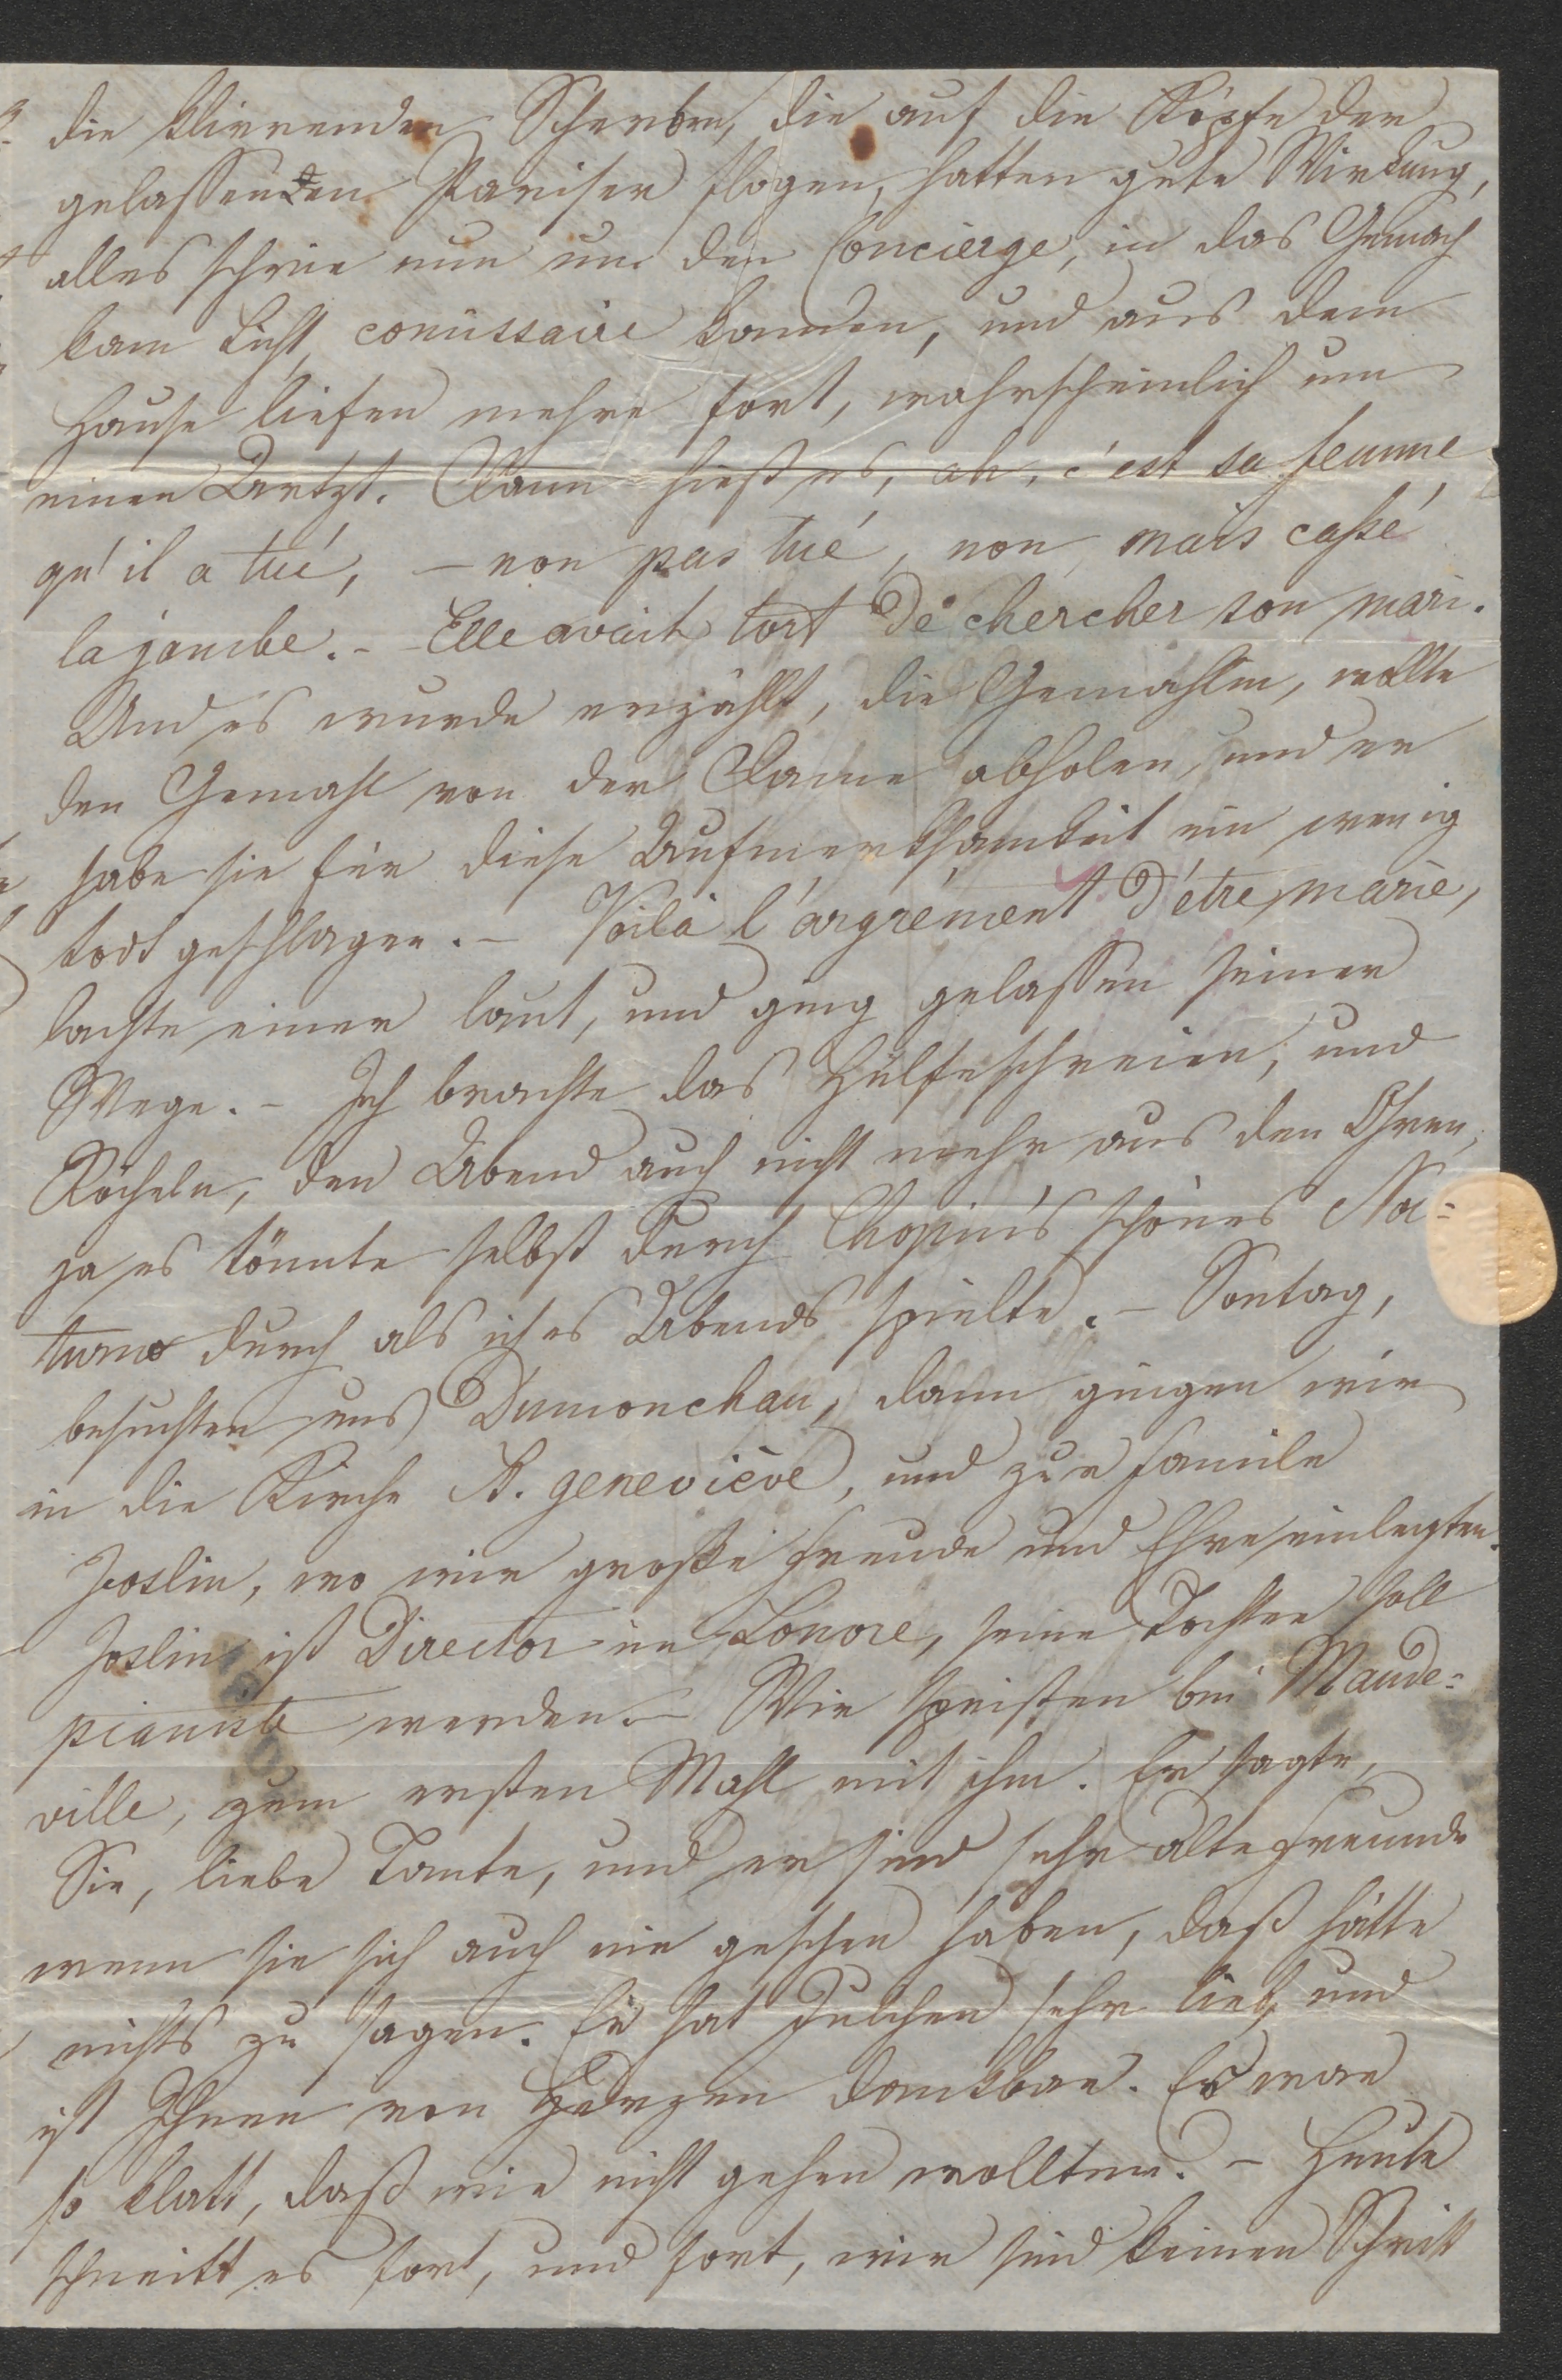 die klirrenden Scherben, die auf die Köpfe der
gelassenden Pariser flogen, hatten gute Wirkung,
alles schrie nun um den Concierge, in das Gemach
kam Licht, comissaire kamen, und aus dem
Hause liefen mehre fort, wahrscheinlich um
einen Artzt. Dann hieß es, ah, c'est sa femme,
qu'il a tué, – non pas tué, non, mais cassé
la jambe. – Elle avait tort de chercher son mari.
Und es wurde erzählt, die Gemahlin, wollte
den Gemahl von der Dame abholen, und er
habe sie für diese Aufmerksamkeit ein wenig
todt geschlagen. – Voilà l'argrément d'être marié,
lachte einer laut, und ging gelassen seiner
Wege. – Ich brachte das Hülfeschreien, und
Röcheln, den Abend auch nicht mehr aus den Ohren,
ja es tönnte selbst durch Chopin's schönes No=
turno durch als ich es Abends spielte. – Sontag,
besuchten uns Dumonchau, dann gingen wir
in die Kirche St. geneviève, und zur Famile
Joslin, wo wir große Freude und Ehre einlegten.
Joslin ist Director im Louvre, seine Tochter soll
pianiste werden. – Wir speisten bei Mande=
ville, zum ersten Mahl mit ihm. Er sagte,
Sie, liebe Tante, und er sind sehr alte Freunde
wenn sie sich auch nie gesehen haben, daß hätte
nichts zu sagen. Er hat Julchen sehr lieb, und
ist Ihnen von Herzen dankbar. Es war
so klatt, daß wir nicht gehen wollten. – Heute
schneitt es fort, und fort, wir sind keinen Schritt